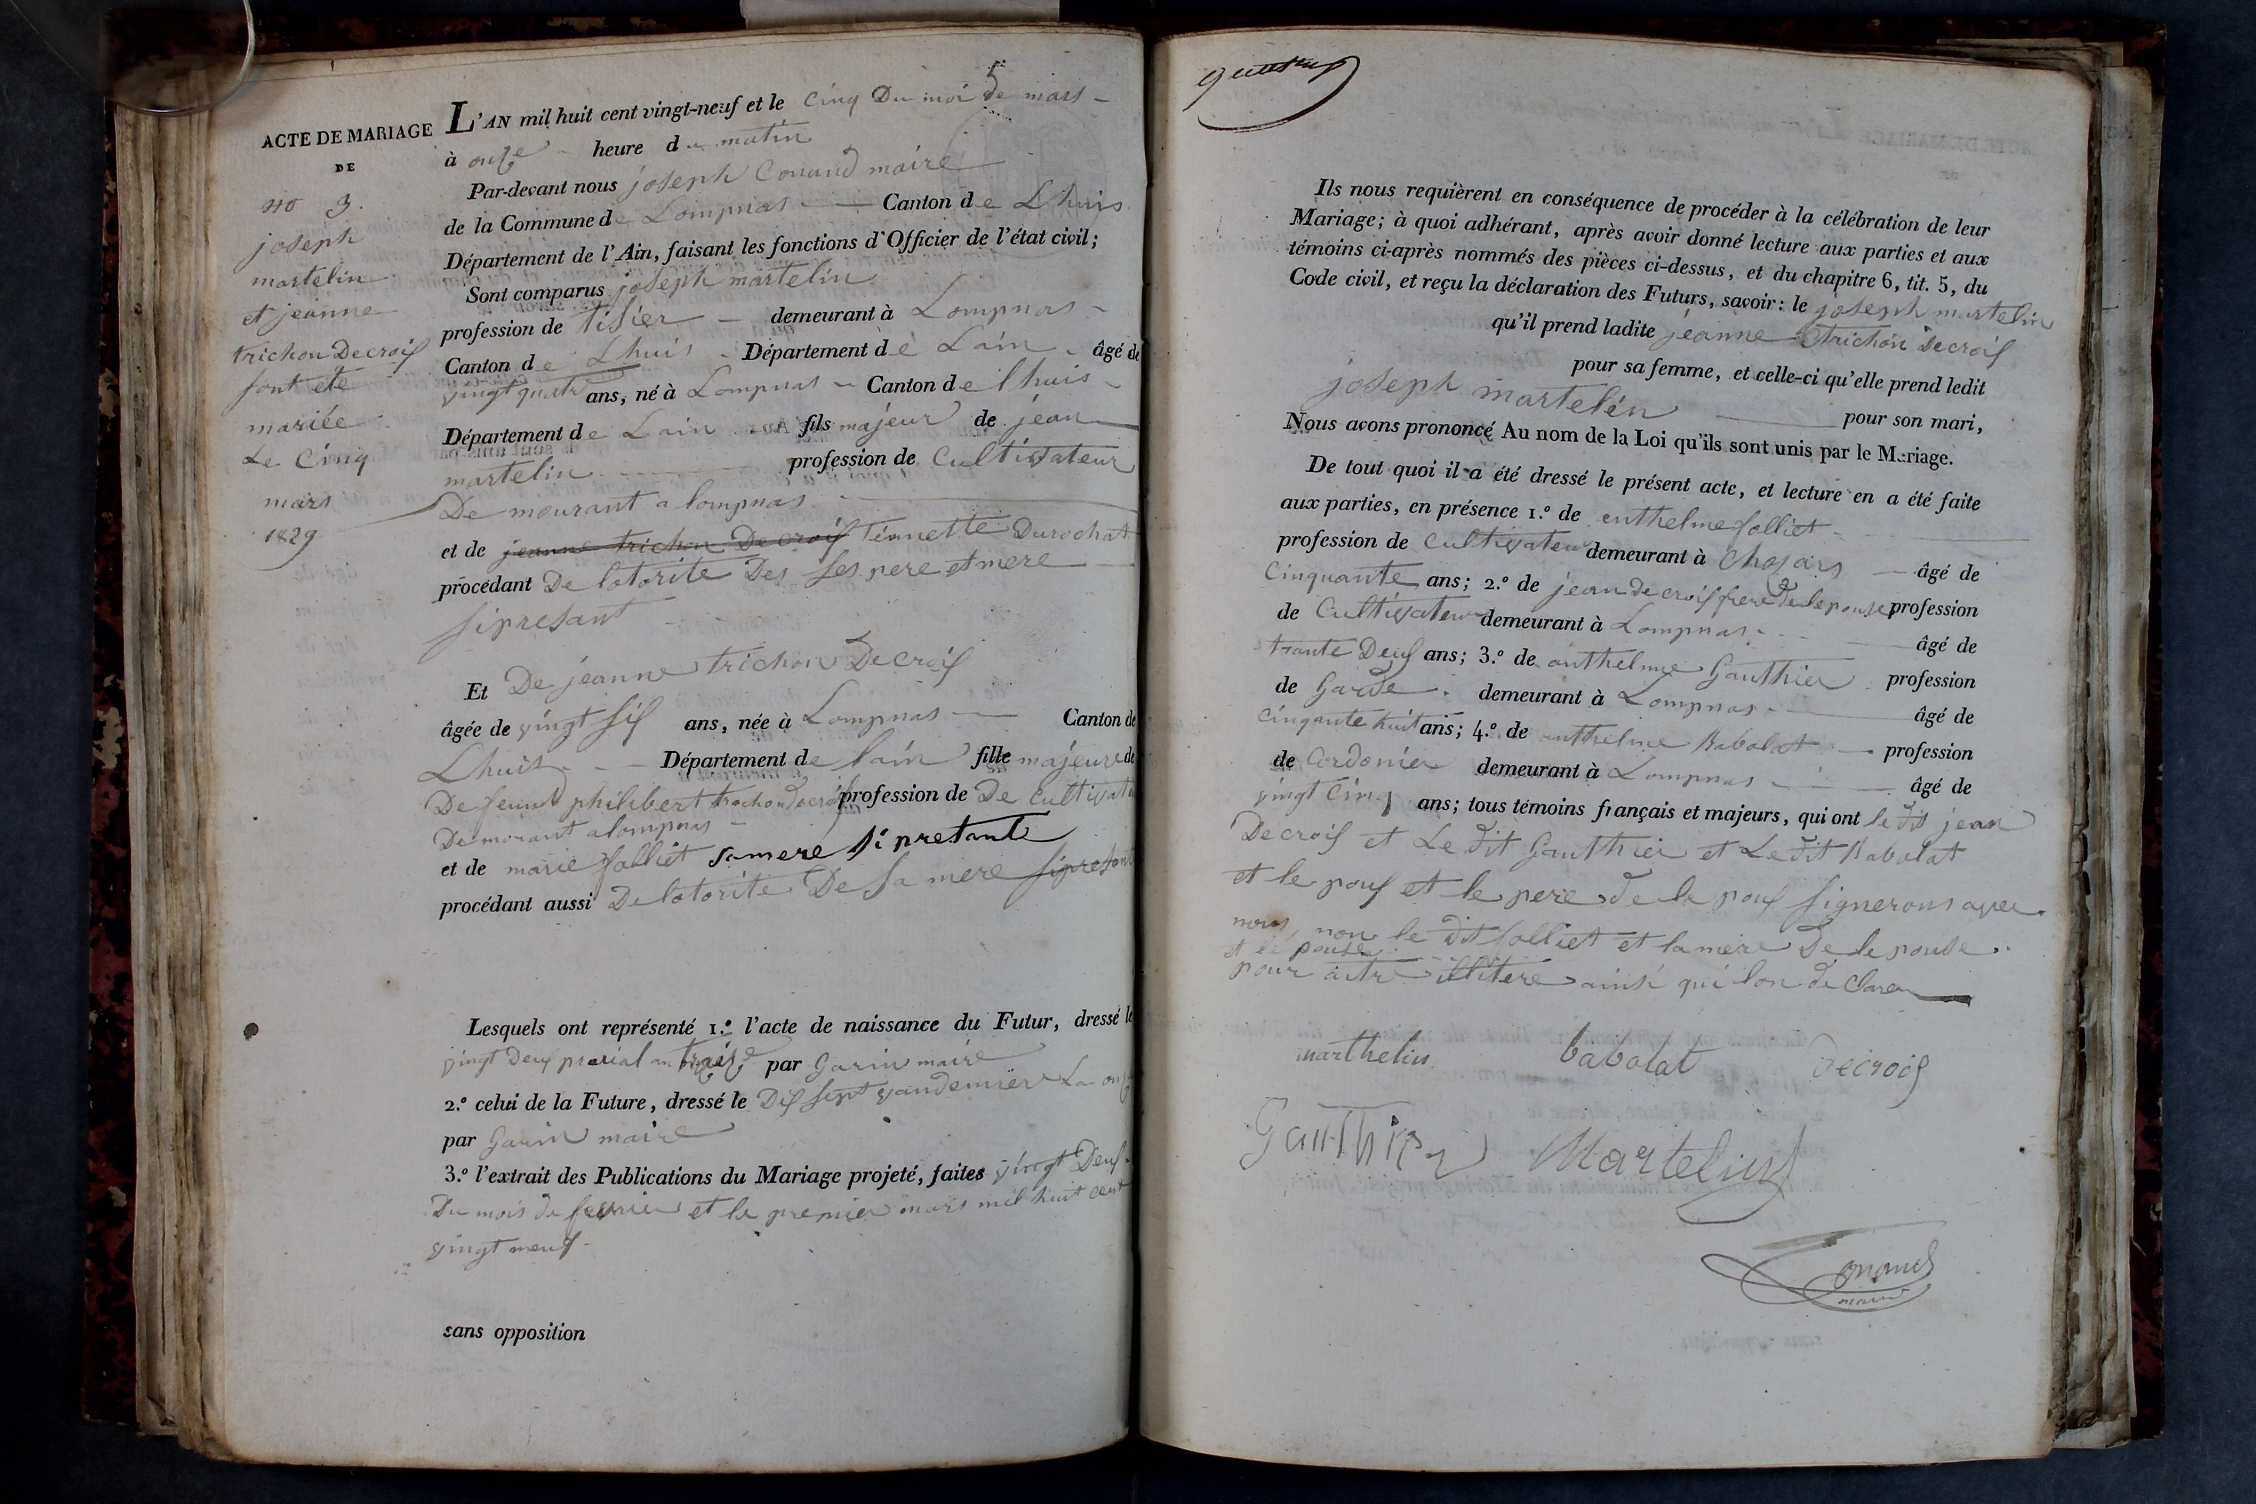 5
ACTE DE MARIAGE
DE
no 3.
joseph
martelin
et jeanne
trichon Decroif
sont ete
mariée
Le Cinq
mars
1829
L'AN mil huit cent vingt-neuf et le Cinq Du moi de mars
à onze heure du matin
Par-devant nous joseph Conand maire
de la Commune de Lompnas Canton de Lhuis
Département de l'Ain, faisant les fonctions d'Officier de l'état civil;
Sont comparus joseph martelin
profession de tisier demeurant à Lompnas
Canton de Lhuis Département de Lain âgé de
vingt quatr ans, né à Lompnas Canton de lhuis
Département de Lain fils majeur de jean
martelin profession de Cultivateur
De mourant a lompnas
et de jeanne trichon Decroif téunette Durochat
procédant De lotorite Des ses pere et mere
si presant
Et De jeanne trichon Decroif
âgée de vingt sif ans, née à Lompnas Canton de
Lhuis Département de lain fille majeure de
De feund philibert trichon decroif profession de De Cultivateu
Demourant a lompnas
et de marie folliet samere si pretante
procédant aussi De lotorite De Sa mere sipresant
Lesquels ont représenté 1.º l'acte de naissance du Futur, dressé le
vingt Deuf prerial an traize par Garin maire
2.º celui de la Future, dressé le Dif Sept vandemiere Lan onz
par Garin maire
3.º l'extrait des Publications du Mariage projeté, faites vingt Deuf
Du mois de fevrier et le premier mars mil huit cent
vingt neuf
sans opposition
Ils nous requièrent en conséquence de procéder à la célébration de leur
Mariage; à quoi adhérant, après avoir donné lecture aux parties et aux
témoins ci-après nommés des pièces ci-dessus, et du chapitre 6, tit. 5, du
Code civil, et reçu la déclaration des Futurs, savoir: le joseph martelin
qu'il prend ladite jeanne trichon Decroif
pour sa femme, et celle-ci qu'elle prend ledit
joseph martelin pour son mari,
Nous avons prononcé Au nom de la Loi qu'ils sont unis par le Mariage.
De tout quoi il a été dressé le présent acte, et lecture en a été faite
aux parties, en présence 1.º de enthelme folliet
profession de Cultivateur demeurant à Chosars âgé de
Cinquante ans; 2.º de jean de croif frere de lepouse profession
de Cultivateur demeurant à Lompnas âgé de
trante Deuf ans; 3.º de anthelme Gauthier profession
de Garde demeurant à Lompnas âgé de
Cinqante huit ans; 4.º de anthelme Babolat profession
de Cordonier demeurant à Lompnas âgé de
vingt Cinq ans; tous témoins français et majeurs, qui ont le dit jean
Decroif et Le dit Gauthier et Le dit Babolat
et le pouf et le pere de le pouf signerons avec
nous, non le dit folliet et la mere De le pouse
et le pouse
pour aitre illitere ainsi qui lon de Clare
marthelin babolat decroif
Gauthier Martelin
Conand
maire